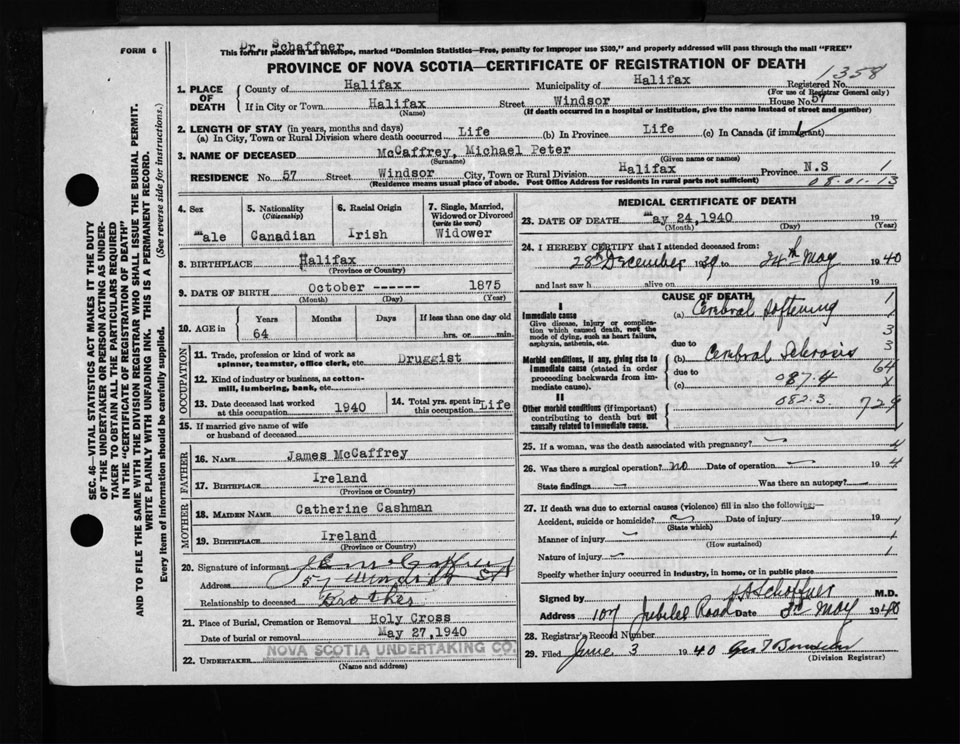 Dr Schaffner
FORM 6
This form if placed in an envelope, marked "Dominion Statistics—Free, penalty for improper use $300," and properly addressed will pass through the mail "FREE"
PROVINCE OF NOVA SCOTIA—CERTIFICATE OF REGISTRATION OF DEATH
1358
1. PLACE OF DEATH
County of Halifax Municipality of Halifax Registered No.
(For use of Registrar General only)
If in City or Town Halifax Street Windsor House No. 57
(Name) (If death occurred in a hospital or institution, give the name instead of street and number)
2. LENGTH OF STAY (in years, months and days)
(a) In City, Town or Rural Division where death occurred Life (b) In Province Life (c) In Canada (if immigrant)
3. NAME OF DECEASED McCaffrey, Michael Peter
(Surname) (Given name or names)
RESIDENCE No. 57 Street Windsor City, Town or Rural Division Halifax Province N.S
(Residence means usual place of abode. Post Office Address for residents in rural parts not sufficient)
1
08-01-13
4. Sex Male
5. Nationality (Citizenship) Canadian
6. Racial Origin Irish
7. Single, Married, Widowed or Divorced (write the word) Widower
8. BIRTHPLACE Halifax
(Province or Country)
9. DATE OF BIRTH October ------ 1875
(Month) (Day) (Year)
10. AGE in Years 64 Months Days If less than one day old hrs. or min.
OCCUPATION
11. Trade, profession or kind of work as spinner, teamster, office clerk, etc. Druggist
12. Kind of industry or business, as cotton-mill, lumbering, bank, etc.
13. Date deceased last worked at this occupation 1940
14. Total yrs. spent in this occupation Life
15. If married give name of wife or husband of deceased
FATHER
16. NAME James McCaffrey
17. BIRTHPLACE Ireland
(Province or Country)
MOTHER
18. MAIDEN NAME Catherine Cashman
19. BIRTHPLACE Ireland
(Province or Country)
20. Signature of informant
Address 57 Windsor St
Relationship to deceased Brother
21. Place of Burial, Cremation or Removal Holy Cross
Date of burial or removal May 27,1940
22. UNDERTAKER NOVA SCOTIA UNDERTAKING CO.
(Name and address)
MEDICAL CERTIFICATE OF DEATH
23. DATE OF DEATH May 24,1940 19
(Month) (Day) (Year)
24. I HEREBY CERTIFY that I attended deceased from:
28th December 1939 to 24th May 1940
and last saw h alive on 19
CAUSE OF DEATH
I
Immediate cause
Give disease, injury or complication which caused death, not the mode of dying, such as heart failure, asphyxia, asthenia, etc.
(a) Cerebral Softening
due to
Morbid conditions, if any, giving rise to immediate cause (stated in order proceeding backwards from immediate cause).
(b) Cerebral Sclerosis
due to
(c) 087.4
II
Other morbid conditions (if important) contributing to death but not causally related to immediate cause.
082.3
1
3
3
64
X
729
25. If a woman, was the death associated with pregnancy?
26. Was there a surgical operation? no Date of operation — 19 4
State findings — Was there an autopsy?
27. If death was due to external causes (violence) fill in also the following:—
Accident, suicide or homicide? Date of injury 19
(State which)
Manner of injury
(How sustained)
Nature of injury
Specify whether injury occurred in industry, in home, or in public place
Signed by Schaffner M.D.
Address 107 Jubilee Road Date May 1940
28. Registrar's Record Number
29. Filed June 3 1940
(Division Registrar)
SEC. 46—VITAL STATISTICS ACT MAKES IT THE DUTY
OF THE UNDERTAKER OR PERSON ACTING AS UNDER-
TAKER TO OBTAIN ALL THE PARTICULARS REQUIRED
IN THE "CERTIFICATE OF REGISTRATION OF DEATH"
AND TO FILE THE SAME WITH THE DIVISION REGISTRAR WHO SHALL ISSUE THE BURIAL PERMIT.
WRITE PLAINLY WITH UNFADING INK. THIS IS A PERMANENT RECORD.
Every item of information should be carefully supplied. (See reverse side for instructions.)